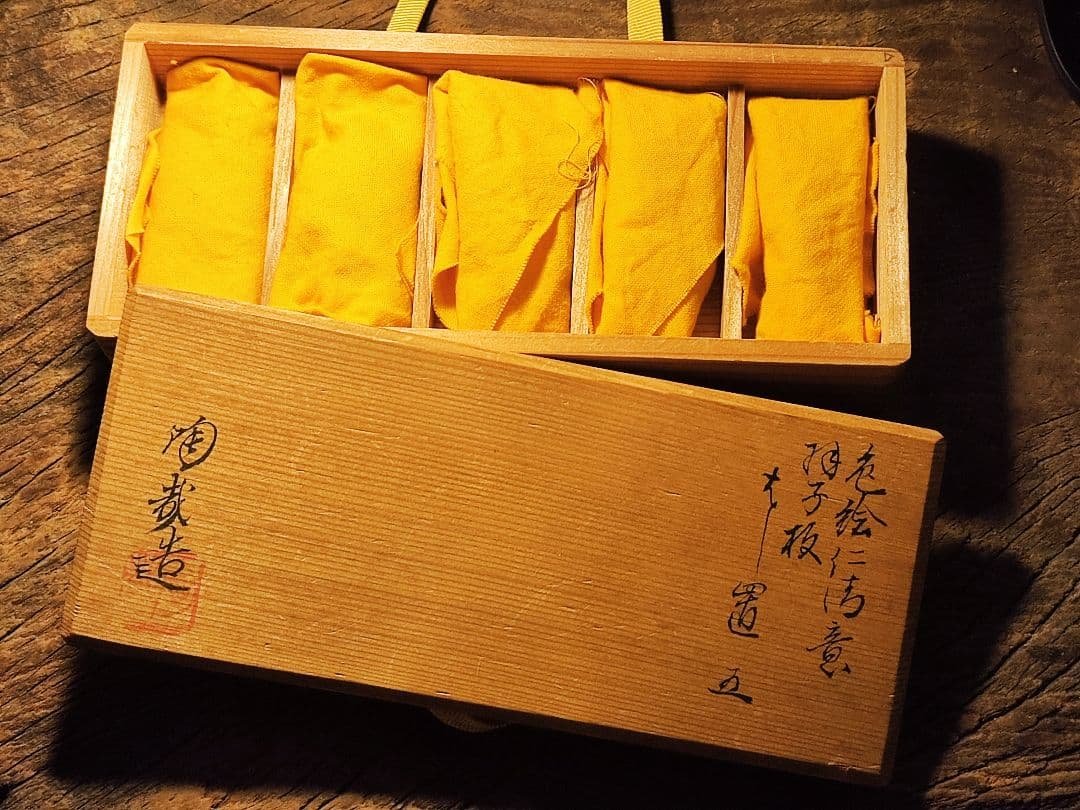 色絵仁清意
羽子板
はし置 五
陶哉造